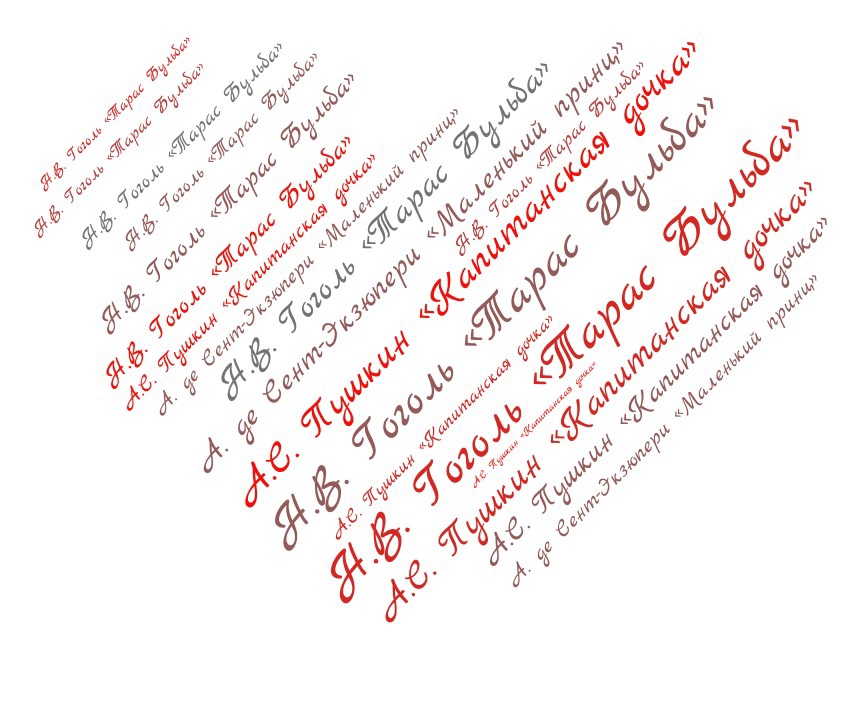 Н.В. Гоголь «Тарас Бульба»
Н.В. Гоголь «Тарас Бульба»
Н.В. Гоголь «Тарас Бульба»
Н.В. Гоголь «Тарас Бульба»
Н.В. Гоголь «Тарас Бульба»
Н.В. Гоголь «Тарас Бульба»
А.С. Пушкин «Капитанская дочка»
А. де Сент-Экзюпери «Маленький принц»
Н.В. Гоголь «Тарас Бульба»
А. де Сент-Экзюпери «Маленький принц»
Н.В. Гоголь «Тарас Бульба»
А.С. Пушкин «Капитанская дочка»
Н.В. Гоголь «Тарас Бульба»
А.С. Пушкин «Капитанская дочка»
Н.В. Гоголь «Тарас Бульба»
А.С. Пушкин «Капитанская дочка»
А.С. Пушкин «Капитанская дочка»
А.С. Пушкин «Капитанская дочка»
А. де Сент-Экзюпери «Маленький принц»